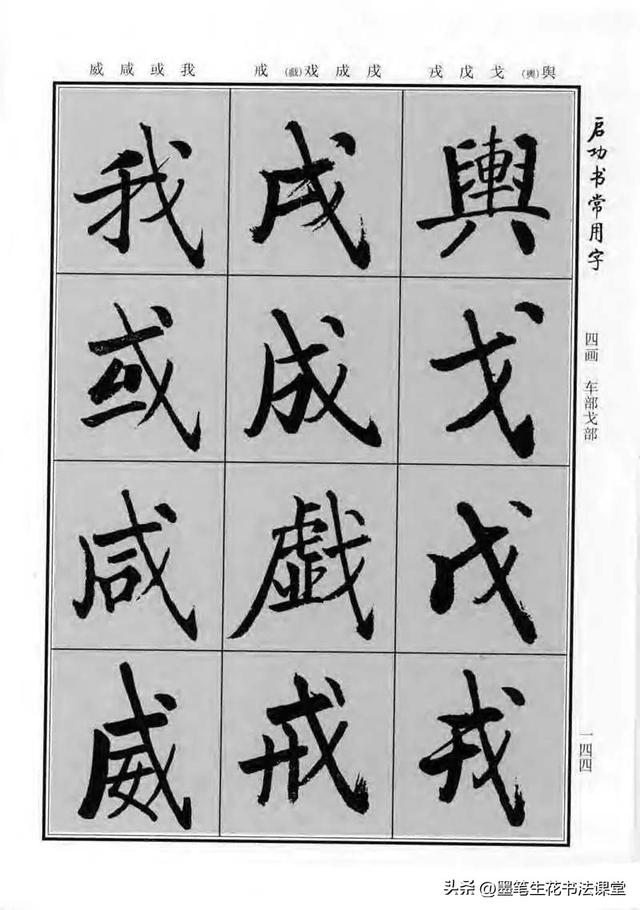 舆(輿)戈戊戎 戌成戏(戲)戒 我或咸威
启功书常用字
四画 车部戈部
一四四
輿戈戊戎
戌成戲戒
我或咸威
头条 @墨笔生花书法课堂